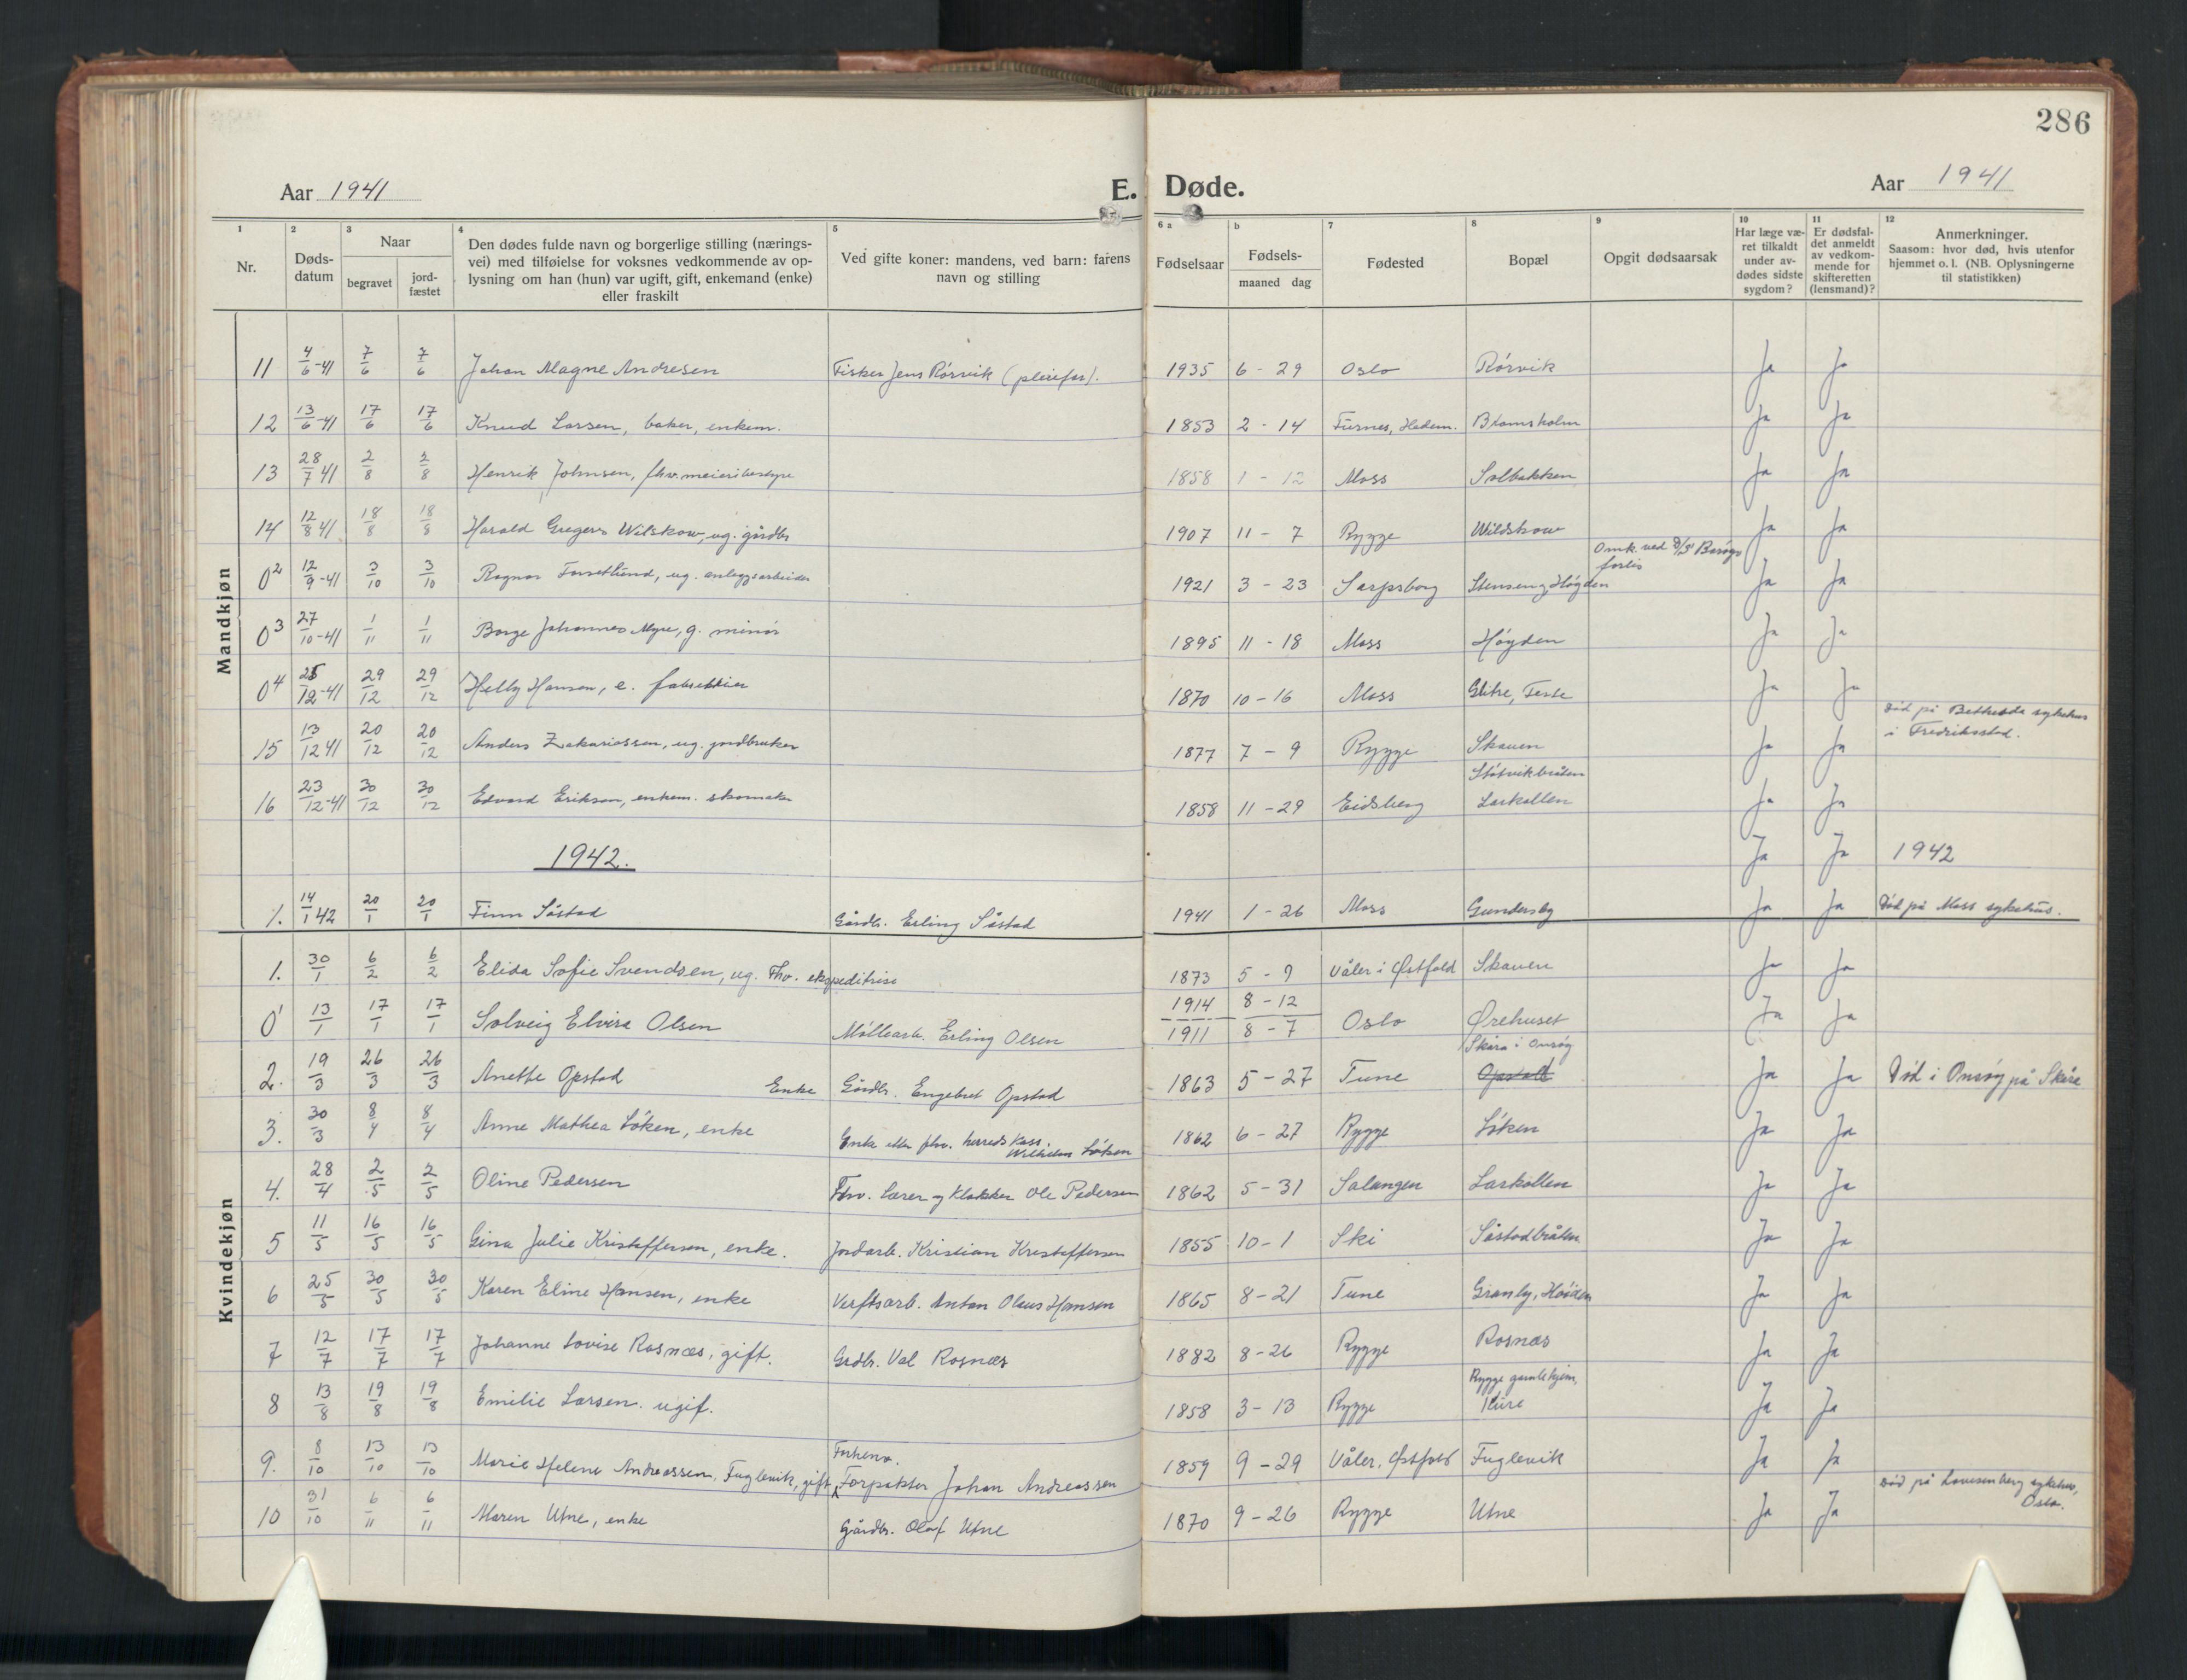 286
Aar 1941
E. Døde.
Aar 1941
1 2 3 4 5 6 a b 7 8 9 10 11 12
Nr.
Døds-
datum
Naar
begravet
jord-
fæstet
Den dødes fulde navn og borgerlige stilling (nærings-
vei) med tilføielse for voksnes vedkommende av op-
lysning om han (hun) var ugift, gift, enkemand (enke)
eller fraskilt
Ved gifte koner: mandens, ved barn: farens
navn og stilling
Fødselsaar
Fødsels-
maaned dag
Fødested
Bopæl
Opgit dødsaarsak
Har læge væ-
ret tilkaldt
under av-
dødes sidste
sygdom?
Er dødsfal-
det anmeldt
av vedkom-
mende for
skifteretten
(lensmand)?
Anmerkninger.
Saasom: hvor død, hvis utenfor
hjemmet o. l. (NB. Oplysningerne
til statistikken)
Mandkjøn
11 4/6-41 7/6 7/6 Johan Magne Andresen Fisker Jens Rörvik (pleiefar). 1935 6 - 29 Oslo Rörvik Ja Ja
12 13/6-41 17/6 17/6 Knud Larsen, baker, enkem. 1853 2 - 14 Furnes, Hedem. Bramsholm Ja Ja
13 28/7 41 2/8 2/8 Henrik Johnsen, fhv. meieribestyr 1858 1 - 12 Moss Solbakken Ja Ja
14 12/8 41 18/8 18/8 Harald Gregers Wilskow, ug. gårdbr 1907 11 - 7 Rygge Wildskow Ja Ja
Omk. ved D/S Barøys
forlis
0² 12/9-41 3/10 3/10 Ragnar Forsetlund, ug. anleggsarbeider 1921 3 - 23 Sarpsborg Stenseng Høgden Ja Ja
0³ 27/10-41 1/11 1/11 Borge Johannes Myre, g. minør 1895 11 - 18 Moss Höyden Ja Ja
0⁴ 25/12-41 29/12 29/12 Helly Hansen, e. fabrikkeier 1870 10-16 Moss Ja Ja
Död på Bethesda sykehus
i Fredrikstad.
15 13/12 41 20/12 20/12 Anders Zakariassen, ug. jordbruker 1877 7 - 9 Rygge Skauen Ja Ja
Støtvikbråten
16 23/12-41 30/12 30/12 Edvard Erikson, enkem. skomaker 1858 11-29 Eidsberg Larkollen Ja Ja
1942. Ja Ja 1942
1. 14/1 42 20/1 20/1 Finn Såstad Gårdbr. Erling Såstad 1941 1 - 26 Moss Gundersby Ja Ja Död på Moss sykehus.
Kvindekjøn
1. 30/1 6/2 6/2 Elida Sofie Svendsen, ug. Fhv. ekspeditrise 1873 5 - 9 Våler i Østfold Skauen Ja Ja
1914 8-12
0¹ 13/1 17/1 17/1 Solveig Elvira Olsen Møllearb. Erling Olsen 1911 8 - 7 Oslo Ørehuset Ja Ja
Skåra i Onsøy
2. 19/3 26/3 26/3 Anette Opstad Enke Gårdbr. Engebret Opstad 1863 5 - 27 Tune Opstad Ja Ja Död i Onsøy på Skåra
3. 30/3 8/4 8/4 Anne Mathea Löken, enke Enke etter fhv. herredskass. Wilhelm Löken 1862 6 - 27 Rygge Löken Ja Ja
4. 28/4 2/5 2/5 Oline Pedersen Fhv. Lærer og klokker Ole Pedersen 1862 5 - 31 Salangen Larkollen Ja Ja
5 11/5 16/5 16/5 Gina Julie Kristoffersen, enke. Jordarb. Kristian Kristoffersen 1855 10-1 Ski Såstadbråten Ja Ja
6 25/5 30/5 30/5 Karen Eline Hansen, enke Verftsarb. Anton Olaus Hansen 1865 8-21 Tune Granly, Höiden Ja Ja
7 12/7 17/7 17/7 Johanne Lovise Rosnæs, gift. Grdbr. Val Rosnæs 1882 8-26 Rygge Rosnæs Ja Ja
Rygge gamlehjem,
8 13/8 19/8 19/8 Emilie Larsen. ugif. 1858 3 - 13 Rygge Kure Ja Ja
Forhenv.
9. 8/10 13/10 13/10 Marie Helene Andreassen, Fuglevik, gift Forpakter Johan Andreassen 1859 9 - 29 Våler, Østfold Fuglevik Ja Ja
Död på Lovisenberg sykehus,
Oslo.
10 31/10 6/11 6/11 Maren Utne, enke Gårdbr. Olaf Utne 1870 9 - 26 Rygge Utne Ja Ja